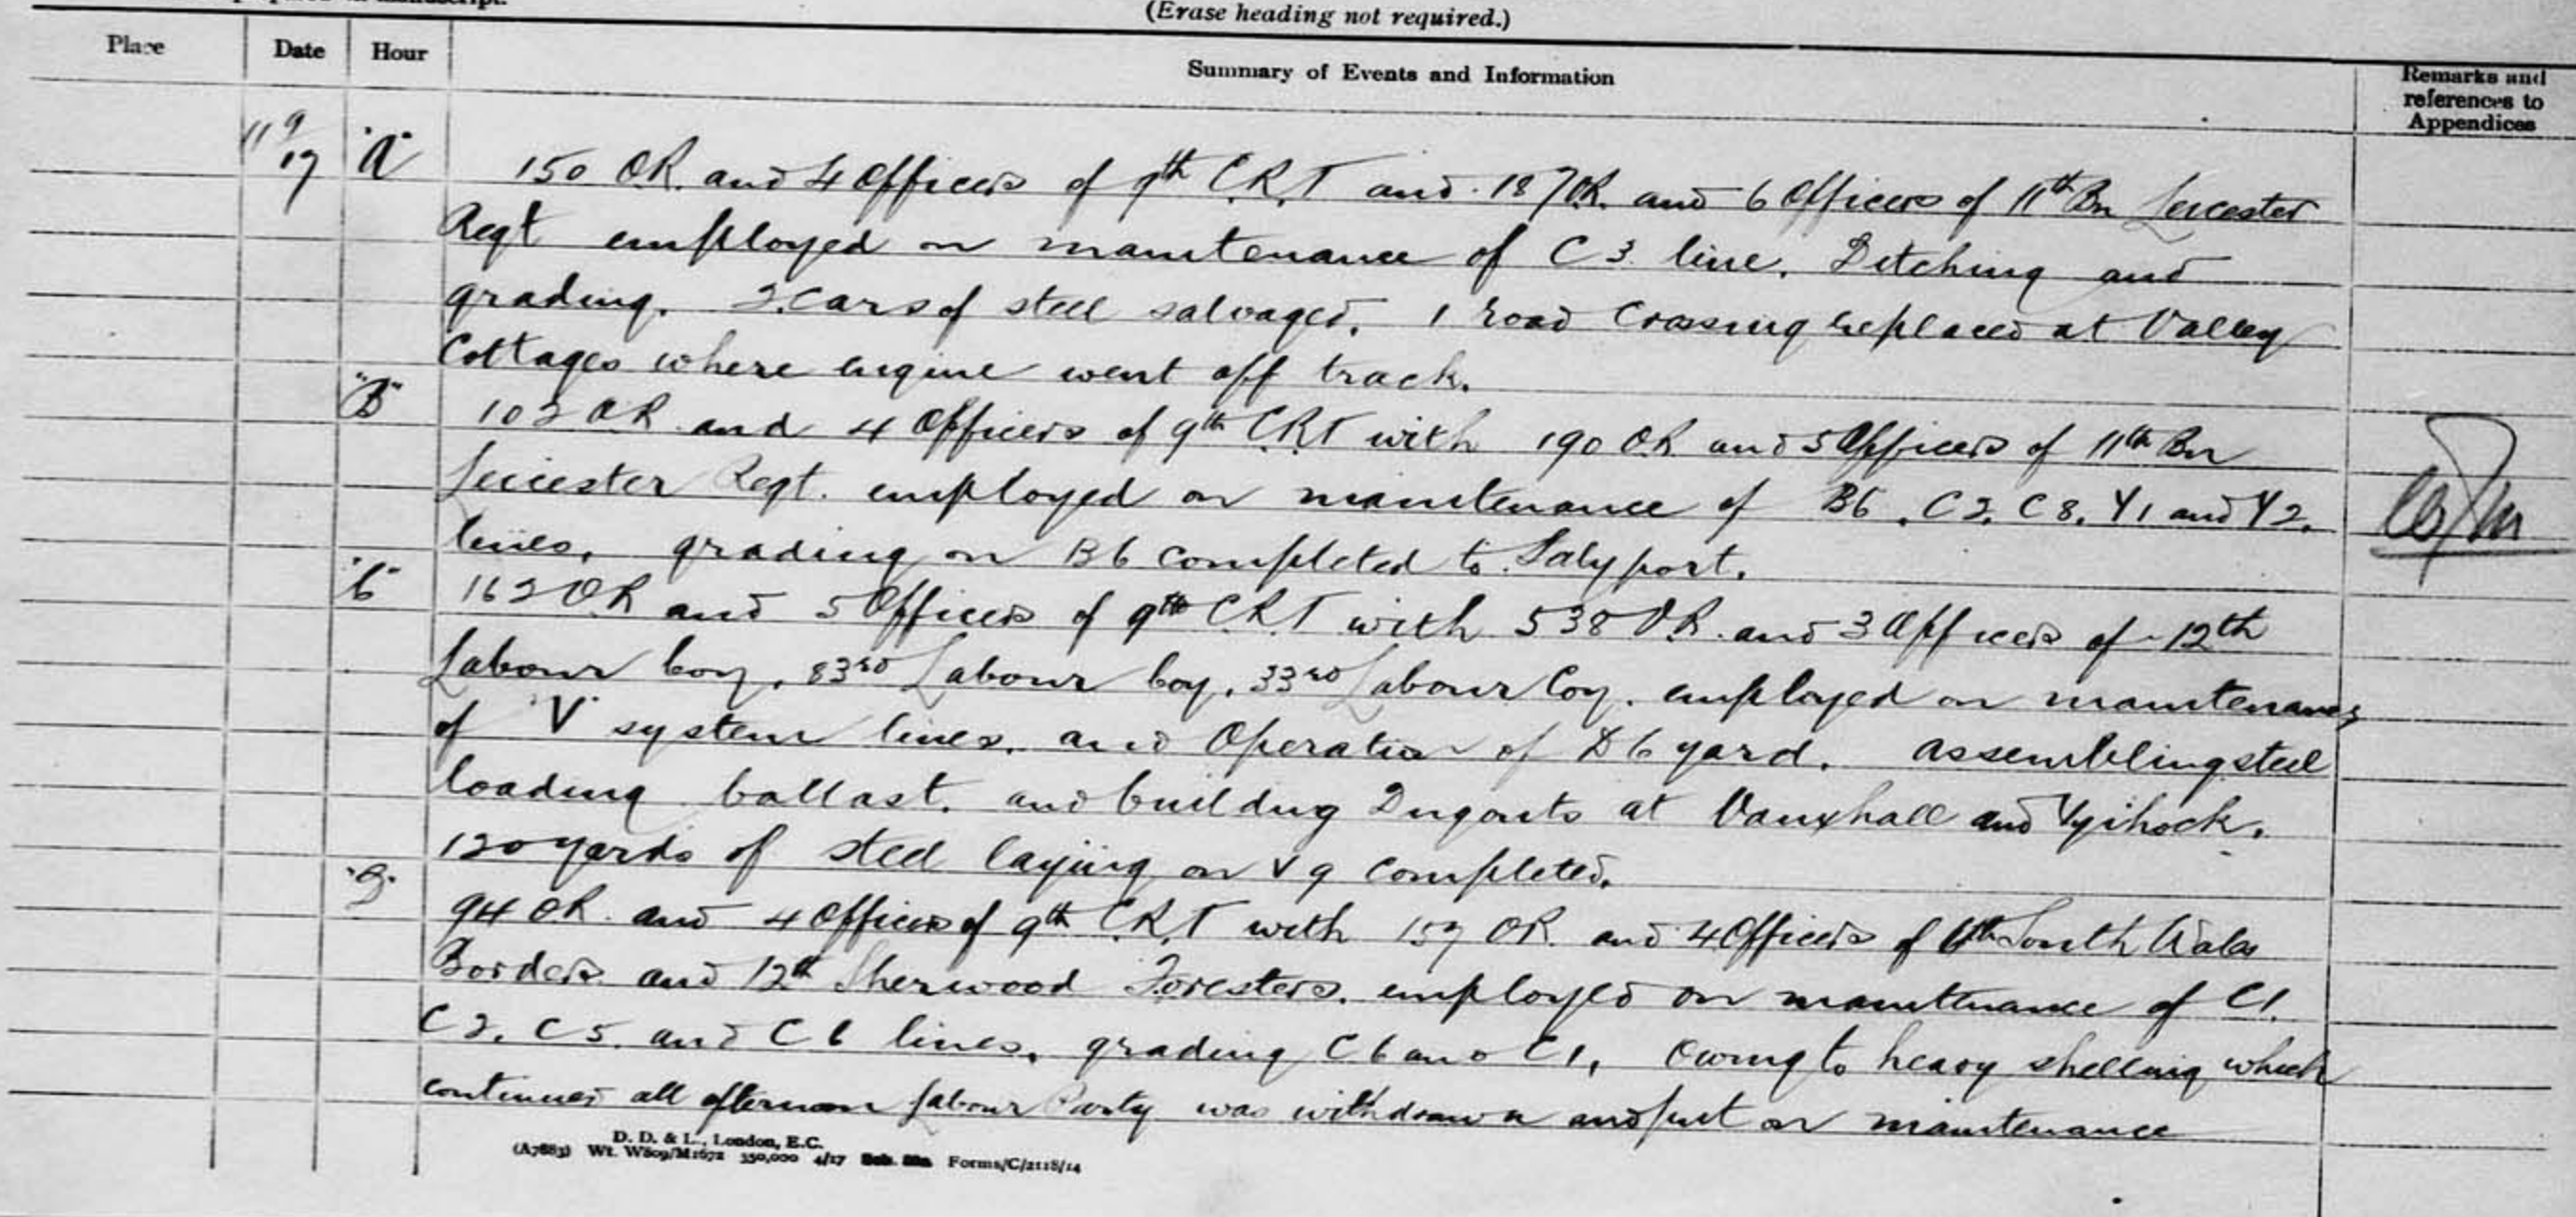 (Erase heading not required.)
Place Date Hour Summary of Events and Information Remarks and references to Appendices
11/9/17 "A" 150 O.R. and 4 Officers of 9th C.R.T and 187 O.R. and 6 Officers of 11th Bn Leicester
Regt employed on maintenance of C3 line. Ditching and
grading. 2 Cars of steel salvaged. 1 road Crossing replaced at Valley
Cottages where engine went off track.
"B" 102 O.R and 4 Officers of 9th C.R.T with 190 O.R and 5 Officers of 11th Bn
Leicester Regt. employed on maintenance of B6, C2, C8, Y1 and Y2.
lines. grading on B6 completed to Salyport.
"C" 162 O.R and 5 Officers of 9th C.R.T with 538 O.R. and 3 Officers of 12th
Labour Coy, 83rd Labour Coy, 33rd Labour Coy. employed on maintenance
of "V" system lines. and Operation of D6 yard. assembling steel
loading ballast. and building Dugouts at Vauxhall and
120 yards of steel laying on V9 completed.
"D" 94 O.R. and 4 Officers of 9th C.R.T with 157 O.R. and 4 Officers of South Wales
Borders and 12th Sherwood Foresters. employed on maintenance of C1.
C2. C5. and C6 lines. grading C6 and C1, Owing to heavy shelling which
continued all afternoon Labour Party was withdrawn and put on maintenance
D. D. & L., London, E.C.
(A7883) Wt. W809/M1672 350,000 4/17 Forms/C/2118/14